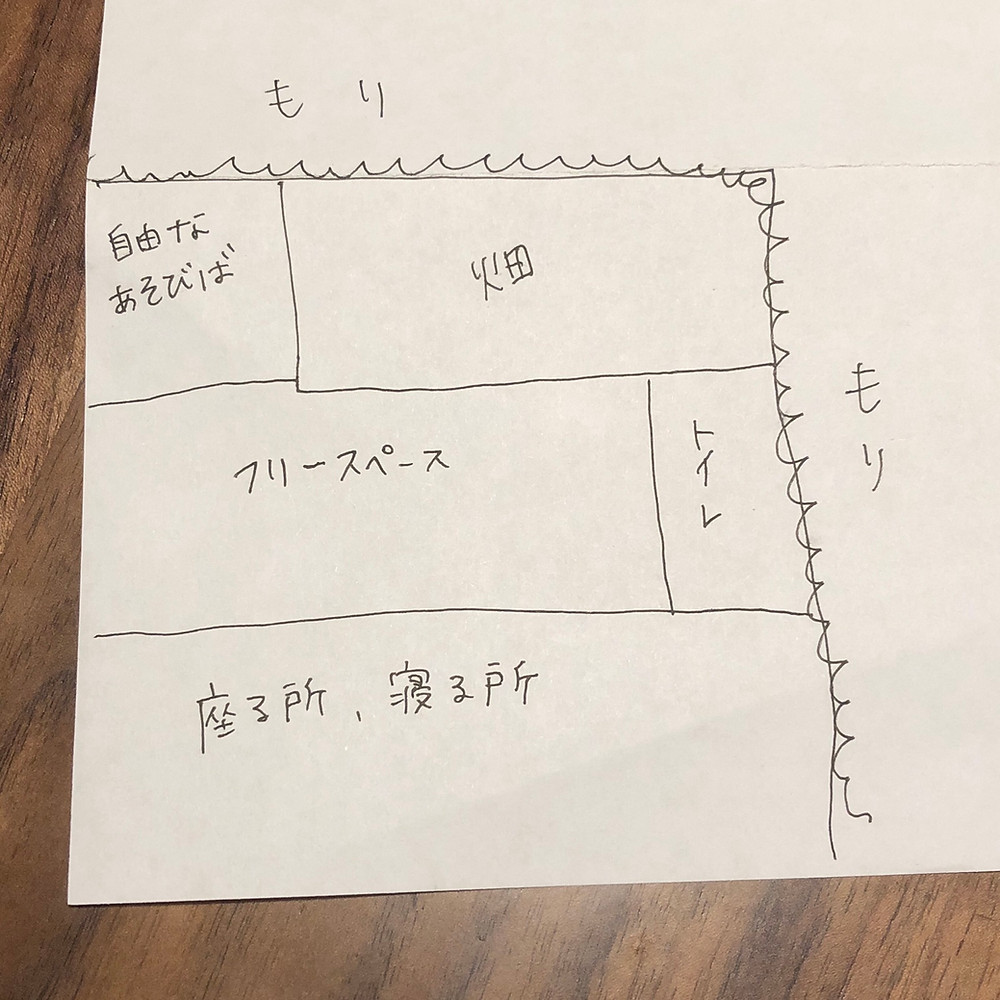 もり
自由な
あそびば
畑
もり
フリースペース
トイレ
座る所、寝る所